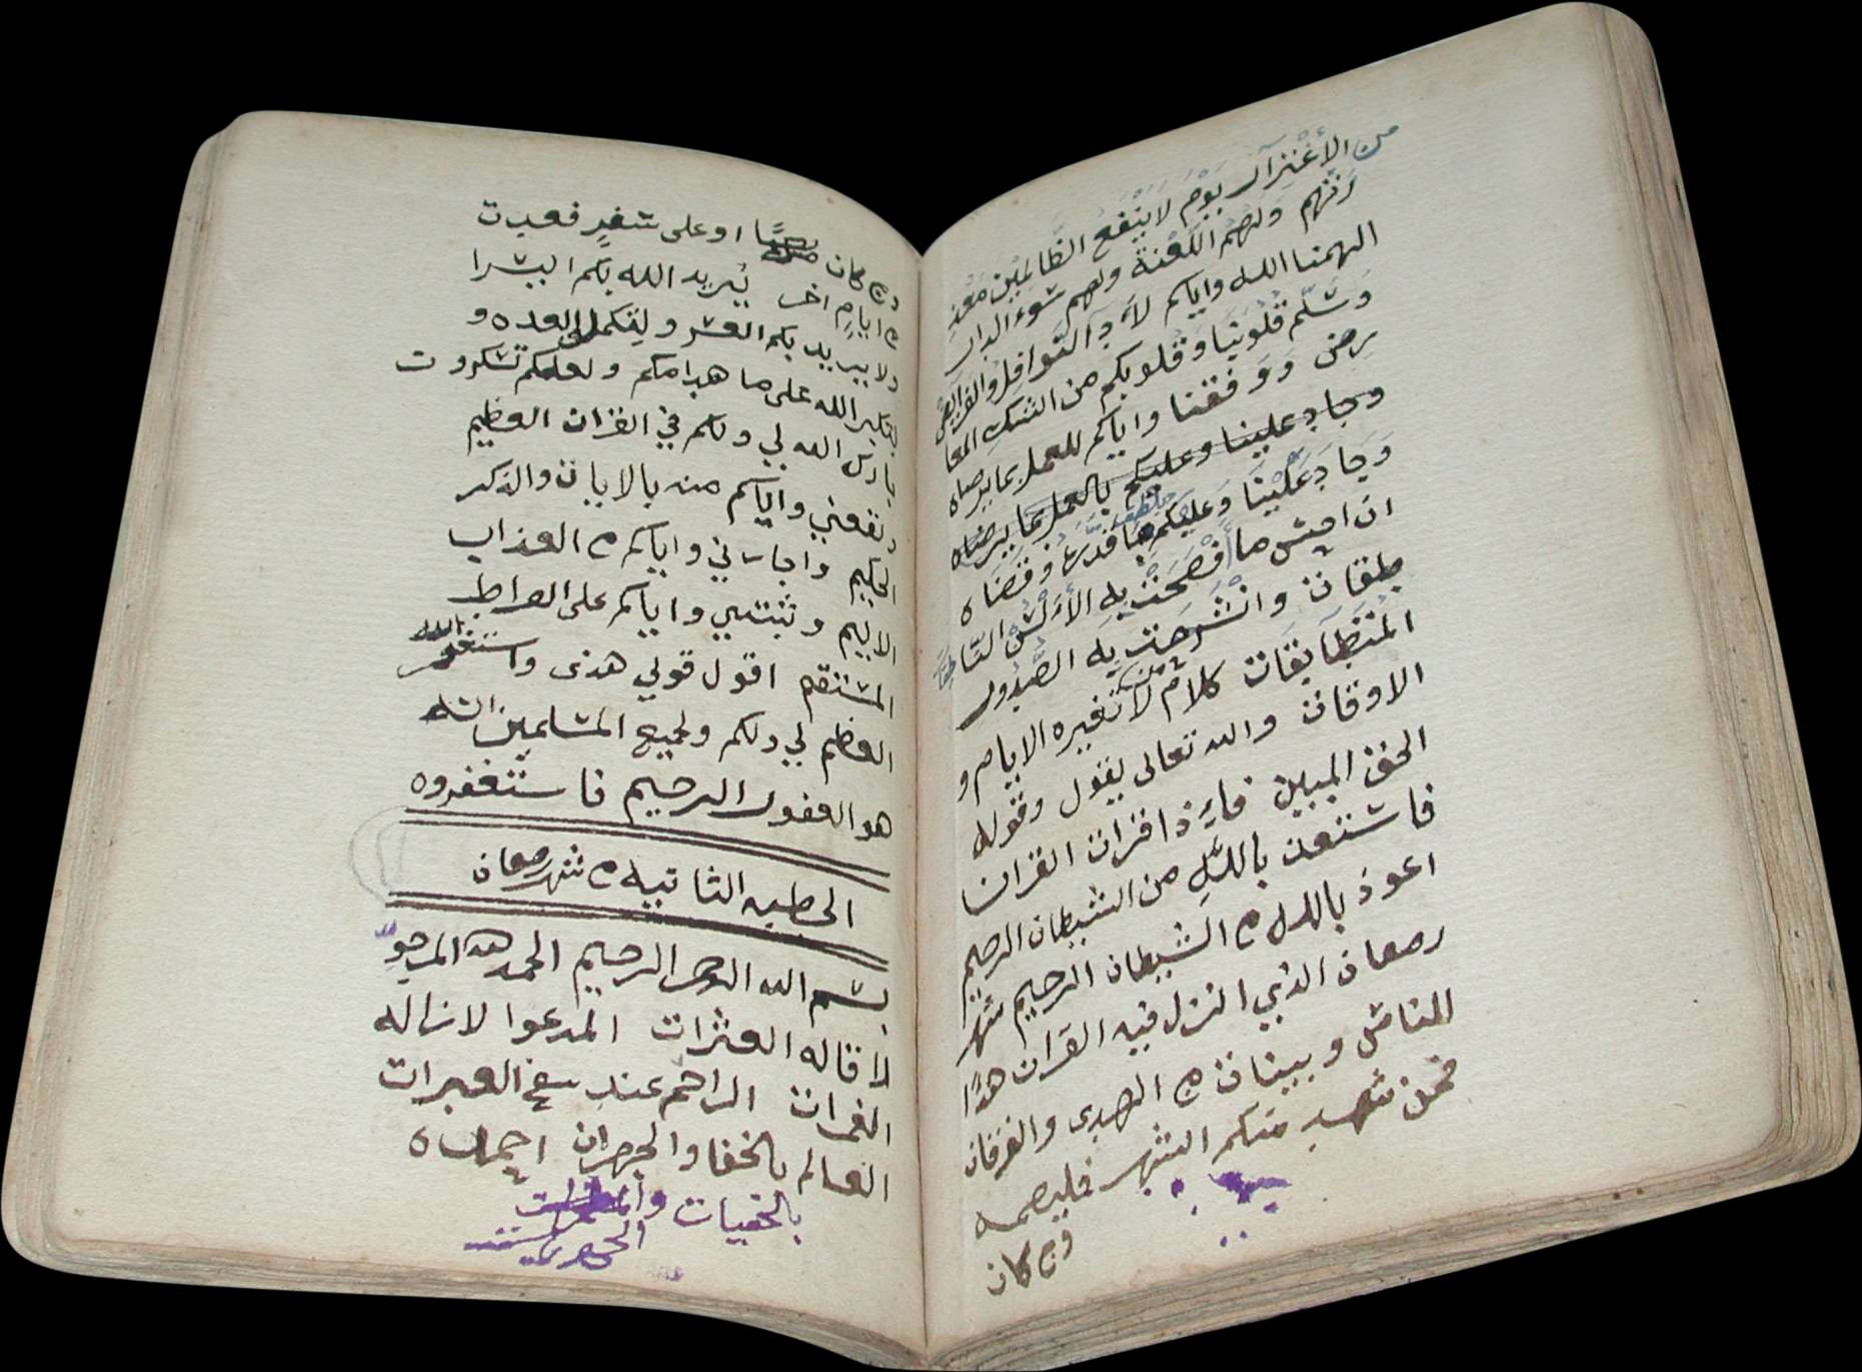 من الأغترار يوم لا ينفع الظالمين معذ
رتهم ولهم اللعنة ولهم سوء الدار
الهمنا الله واياكم لأدآ النوافل والفرايض
وسلم قلوبنا وقلوبكم من الشك المعا
رض ووفقنا واياكم للعمل بما يرضاه
وجاد علينا وعليكم بالعمل بما يرضاه
وجاد علينا وعليكم بلطف ما قدره وقضاه
ان احسن ما أفصحت به الألسن الناطقا
طقات وانشرحت به الصدور
المتطابقات كلام لا تغيره الايام و
الاوقات والله تعالى يقول وقوله
الحق المبين فإذا قرات القران
فاستعذ بالله من الشيطان الرجيم
اعوذ بالله من الشيطان الرجيم شهر
رمضان الذي انزل فيه القران هدًا
للناس وبينات من الهدى والفرقان
فمن شهد منكم الشهر فليصمه
ومن كان
ومن كان مريضًا او على سفرٍ فعدت
من ايامٍ اخر يُريد الله بكم اليسرا
ولا يريد بكم العسر ولتكملوا العده و
لتكبر الله على ما هداكم ولعلكم تشكروت
بارك الله لي ولكم في القران العظيم
ونفعني واياكم منه بالايات والذكر
الحكيم واجارني واياكم من العذاب
الاليم وثبتني واياكم على الصراط
المستقم اقول قولي هذى واستغفر الله
العظم لي ولكم ولجميع المسلمين انه
هو الغفور الرحيم فاستغفروه
الخطبه الثانيه من شهر رمضان
بسم الله الرحمن الرحيم الحمد لله المرجو
لاقاله العثرات المدعوا لازاله
الغمرات الراحم عند سفح العبرات
العالم بالخفا والجهران احمده
بالخفيات